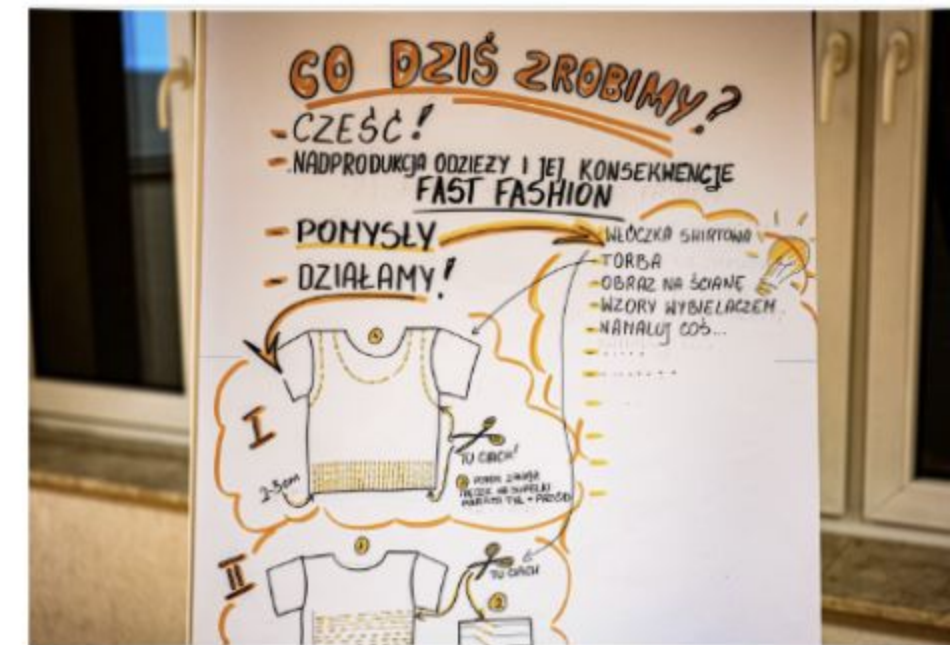 CO DZIŚ ZROBIMY?
- CZEŚĆ!
- NADPRODUKCJA ODZIEŻY I JEJ KONSEKWENCJE
FAST FASHION
- POMYSŁY
- DZIAŁAMY!
- WŁÓCZKA SHIRTOWA
- TORBA
- OBRAZ NA ŚCIANĘ
- WZORY WYBIELACZEM
- NAMALUJ COŚ...
I
TU CIACH!
2-3cm
2
II
1
TU CIACH
2